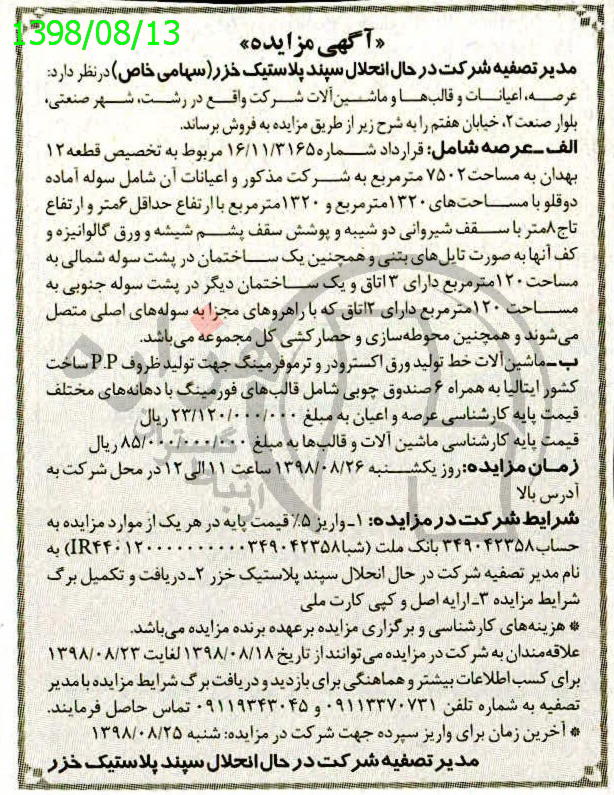 1398/08/13
«آگهی مزایده»
مدیر تصفیه شرکت در حال انحلال سپند پلاستیک خزر (سهامی خاص) در نظر دارد:
عرصه، اعیانات و قالب‌ها و ماشین‌آلات شرکت واقع در رشت، شهر صنعتی،
بلوار صنعت ۲، خیابان هفتم را به شرح زیر از طریق مزایده به فروش برساند.
الف ـ عرصه شامل: قرارداد شماره ۱۶/۱۱/۳۱۶۵ مربوط به تخصیص قطعه ۱۲
بهدان به مساحت ۷۵۰۲ مترمربع به شرکت مذکور و اعیانات آن شامل سوله آماده
دوقلو با مساحت‌های ۱۳۲۰ مترمربع و ۱۳۲۰ مترمربع با ارتفاع حداقل ۶ متر و ارتفاع
تاج ۸ متر با سقف شیروانی دو شیبه و پوشش سقف پشم شیشه و ورق گالوانیزه و
کف آنها به صورت تایل‌های بتنی و همچنین یک ساختمان در پشت سوله شمالی به
مساحت ۱۲۰ مترمربع دارای ۳ اتاق و یک ساختمان دیگر در پشت سوله جنوبی به
مساحت ۱۲۰ مترمربع دارای ۲ اتاق که با راهروهای مجزا به سوله‌های اصلی متصل
می‌شوند و همچنین محوطه‌سازی و حصارکشی کل مجموعه می‌باشد.
ب ـ ماشین‌آلات خط تولید ورق اکسترودر و ترموفرمینگ جهت تولید ظروف P.P ساخت
کشور ایتالیا به همراه ۶ صندوق چوبی شامل قالب‌های فورمینگ با دهانه‌های مختلف
قیمت پایه کارشناسی عرصه و اعیان به مبلغ ۲۳/۱۲۰/۰۰۰/۰۰۰ ریال
قیمت پایه کارشناسی ماشین آلات و قالب‌ها به مبلغ ۸۵/۰۰۰/۰۰۰/۰۰۰ ریال
زمان مزایده: روز یکشنبه ۱۳۹۸/۰۸/۲۶ ساعت ۱۱ الی ۱۲ در محل شرکت به
آدرس بالا
شرایط شرکت در مزایده: ۱ـ واریز ۵٪ قیمت پایه در هر یک از موارد مزایده به
حساب ۳۴۹۰۴۲۳۵۸ بانک ملت (شبا IR۴۴۰۱۲۰۰۰۰۰۰۰۰۰۰۰۳۴۹۰۴۲۳۵۸) به
نام مدیر تصفیه شرکت در حال انحلال سپند پلاستیک خزر ۲ـ دریافت و تکمیل برگ
شرایط مزایده ۳ـ ارایه اصل و کپی کارت ملی
* هزینه‌های کارشناسی و برگزاری مزایده برعهده برنده مزایده می‌باشد.
علاقه‌مندان به شرکت در مزایده می‌توانند از تاریخ ۱۳۹۸/۰۸/۱۸ لغایت ۱۳۹۸/۰۸/۲۳
برای کسب اطلاعات بیشتر و هماهنگی برای بازدید و دریافت برگ شرایط مزایده با مدیر
تصفیه به شماره تلفن ۰۹۱۱۳۳۷۰۷۳۱ و ۰۹۱۱۹۳۴۳۰۴۵ تماس حاصل فرمایند.
* آخرین زمان برای واریز سپرده جهت شرکت در مزایده: شنبه ۱۳۹۸/۰۸/۲۵
مدیر تصفیه شرکت در حال انحلال سپند پلاستیک خزر